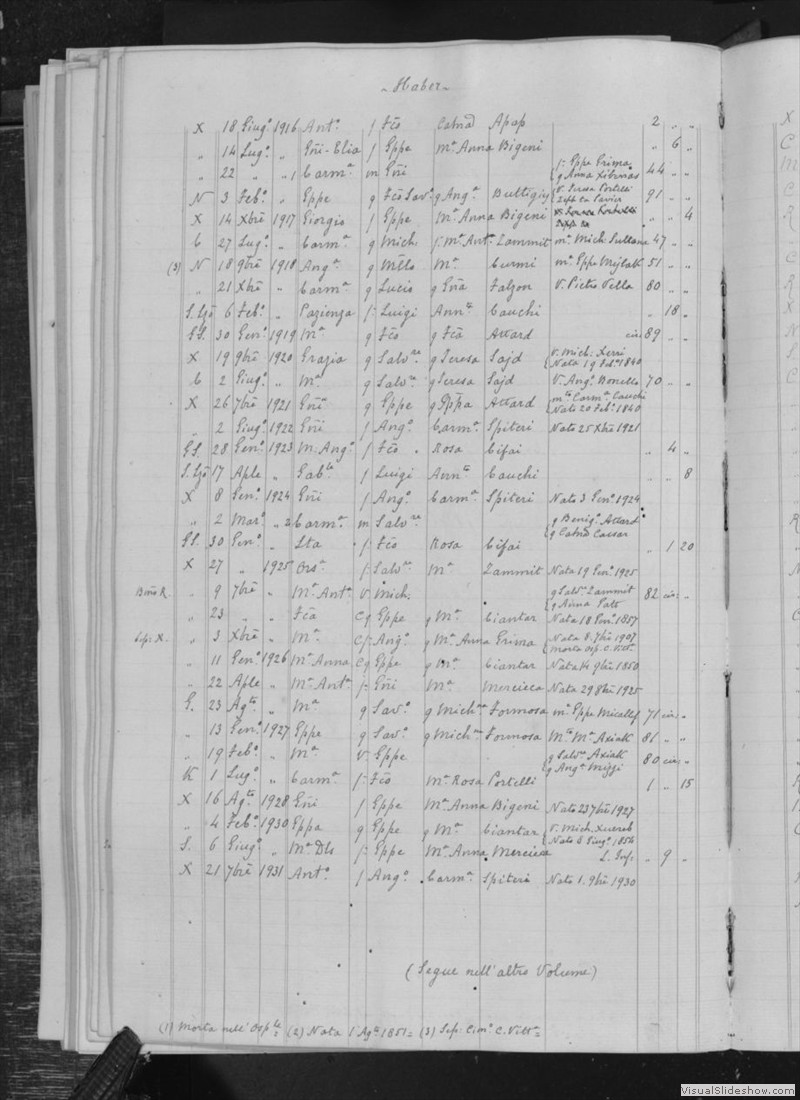 Haber
X 18 Giugº 1916 Antº f Fcõ Catnã Apap 2 " "
" 14 Lugº " Gñi-Elia f Eppe Mª Anna Bigeni " 6 "
" 22 " " 1 Carmª m Gñi { f: Eppe Grima g Anna Xiberras 44 " "
N 3 Febº " Eppe g Fcõ Savº g Angª Buttigieg { V. Teresa Portelli 91 " "
X 14 Xbrẽ 1917 Giorgio f Eppe Mª Anna Bigeni " " 4
C 27 Lugº " Carmª g Mich. f: Mª Antª Zammit mª Mich. Sultana 47 " "
(3) N 18 9brẽ 1918 Angª g Mllo Mª Curmi mª Eppe Mifsak 51 " "
" 21 Xbrẽ " Carmª g Lucio g Gña Falzon V. Pietro Vella 80 " "
S. Ljõ 6 Febº " Pazienza f: Luigi Annta Cauchi " 18 "
GS. 30 Genº 1919 Mª g Fcõ g Fcã Attard cir: 89 " "
X 19 9brẽ 1920 Grazia g Salvre g Teresa Sajd { V. Mich: Xerri Nata 19 Febº 1840
C 2 Giugº " Mª g Salvre g Teresa Sajd V. Angº Bonello 70 " "
X 26 7brẽ 1921 Gñi g Eppe g Eppa Attard { mto Carmª Cauchi Nato 20 Febº 1840
" 2 Giugº 1922 Gñi f Angº Carmª Spiteri Nato 25 Xbrẽ 1921
GS. 28 Genº 1923 M. Angª f Fcõ Rosa Cifai " 4 "
S. Ljõ 17 Aple " Gable f Luigi Annta Cauchi " " 8
X 8 Genº 1924 Gñi f Angº Carmª Spiteri Nato 3 Genº 1924
" 2 Marº " 2 Carmª m Salvre { g Benigº Attard g Catnã Cassar
GS. 30 Genº " Sta f: Fcõ Rosa Cifai " 1 20
X 27 " 1925 Orsª f: Salvre Mª Zammit Nata 19 Genº 1925
" 9 7brẽ " Mª Antª V. Mich. { g Salvre Zammit g Anna Pato 82 cir: "
" 23 " " Fcã Cg Eppe g Mª Ciantar Nata 18 Genº 1857
Sep: X. " 3 Xbrẽ " Mª Cf: Angº g Mª Anna Grima { Nata 8. 7brẽ 1907 Morta Osp. C. Vittª
" 11 Genº 1926 Mª Anna Cg Eppe g Mª Ciantar Nata 14 9brẽ 1850
" 22 Aple " Mª Antª f: Gñi Mª Mercieca Nata 29 8brẽ 1925
G. 23 Agto " Mª g Savº g Michna Formosa mª Eppe Micallef 71 cir: "
" 13 Genº 1927 Eppe g Savº g Michna Formosa Mto Mª Axiak 81 " "
" 19 Febº " Mª V. Eppe { g Salvre Axiak g Angª Mizzi 80 cir: "
K 1 Lugº " Carmª f: Fcõ Mª Rosa Portelli 1 " 15
X 16 Agto 1928 Gñi f Eppe Mª Anna Bigeni Nato 23 7brẽ 1927
" 4 Febº 1930 Eppa g Eppe g Mª Ciantar { V. Mich. Xuereb Nato 6 Giugº 1854
S. 6 Giugº " Mª Dls f: Eppe Mª Anna Mercieca L. Inf: " 9 "
X 21 7brẽ 1931 Antº f Angº Carmª Spiteri Nato 1. 9brẽ 1930
(Segue nell' altro Volume)
(1) Morta nell' Osple = (2) Nata 1 Agto 1851 = (3) Sep: Cimº C. Vittª =
VisualSlideshow.com